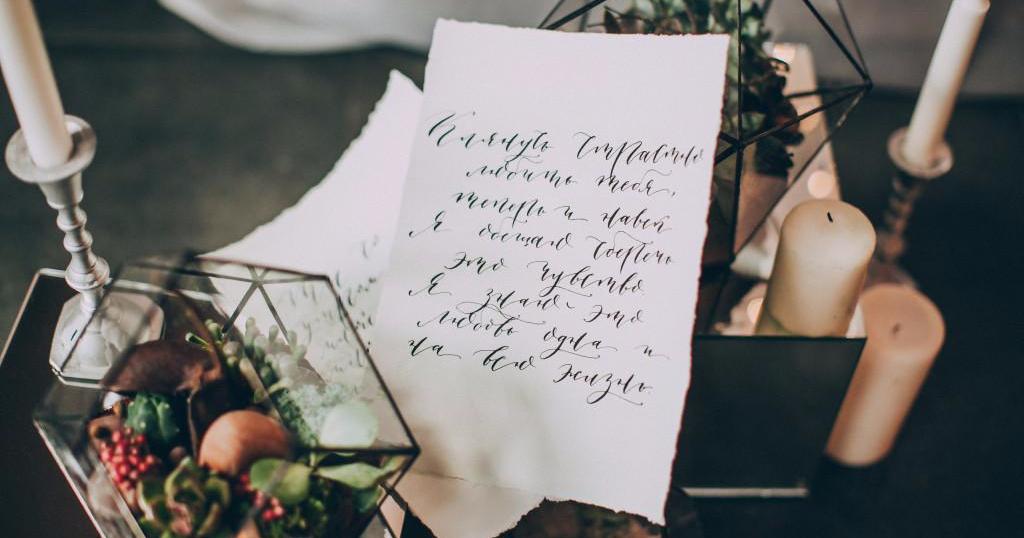 Клянусь страстно
любить тебя,
теперь и навек
Я обещаю беречь
это чувство
Я знаю это
любовь одна и
на всю жизнь.